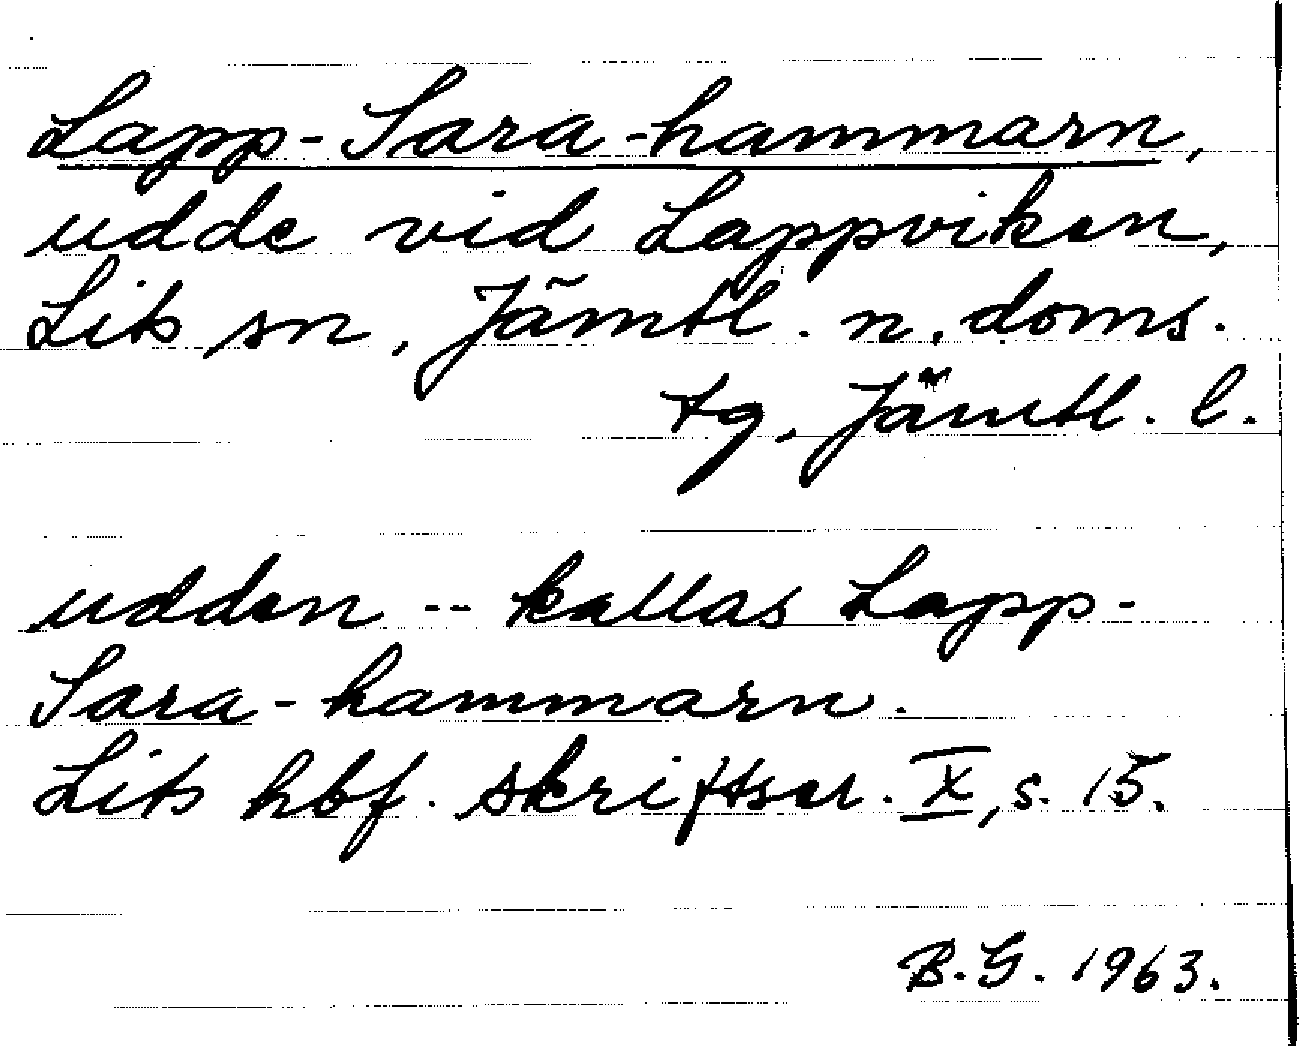 Lapp-Sara-hammarn,
udde vid Lappviken,
Lits sn, Jämtl. n. doms.
tg, Jämtl. l.
udden -- kallas Lapp-
Sara-hammarn.
Lits hbf. skriftser. X, s. 15.
B.G. 1963.